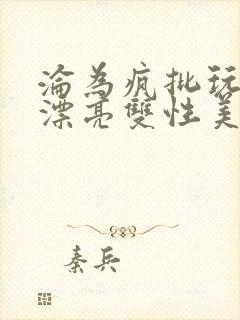 淪為瘋批玩
漂亮雙性美
秦兵